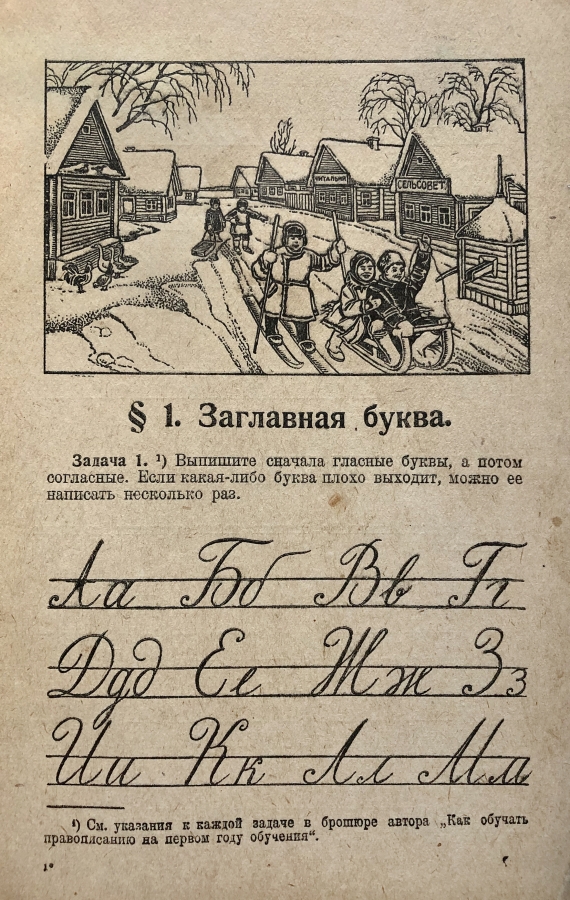 ЧИТАЛЬНЯ
СЕЛЬСОВЕТ.
§ 1. Заглавная буква.
Задача 1. ¹) Выпишите сначала гласные буквы, а потом
согласные. Если какая-либо буква плохо выходит, можно ее
написать несколько раз.
Аа Бб Вв Гг
Ддд Ее Жж Зз
Ии Кк Лл Мм
¹) См. указания к каждой задаче в брошюре автора „Как обучать
правописанию на первом году обучения“.
1*